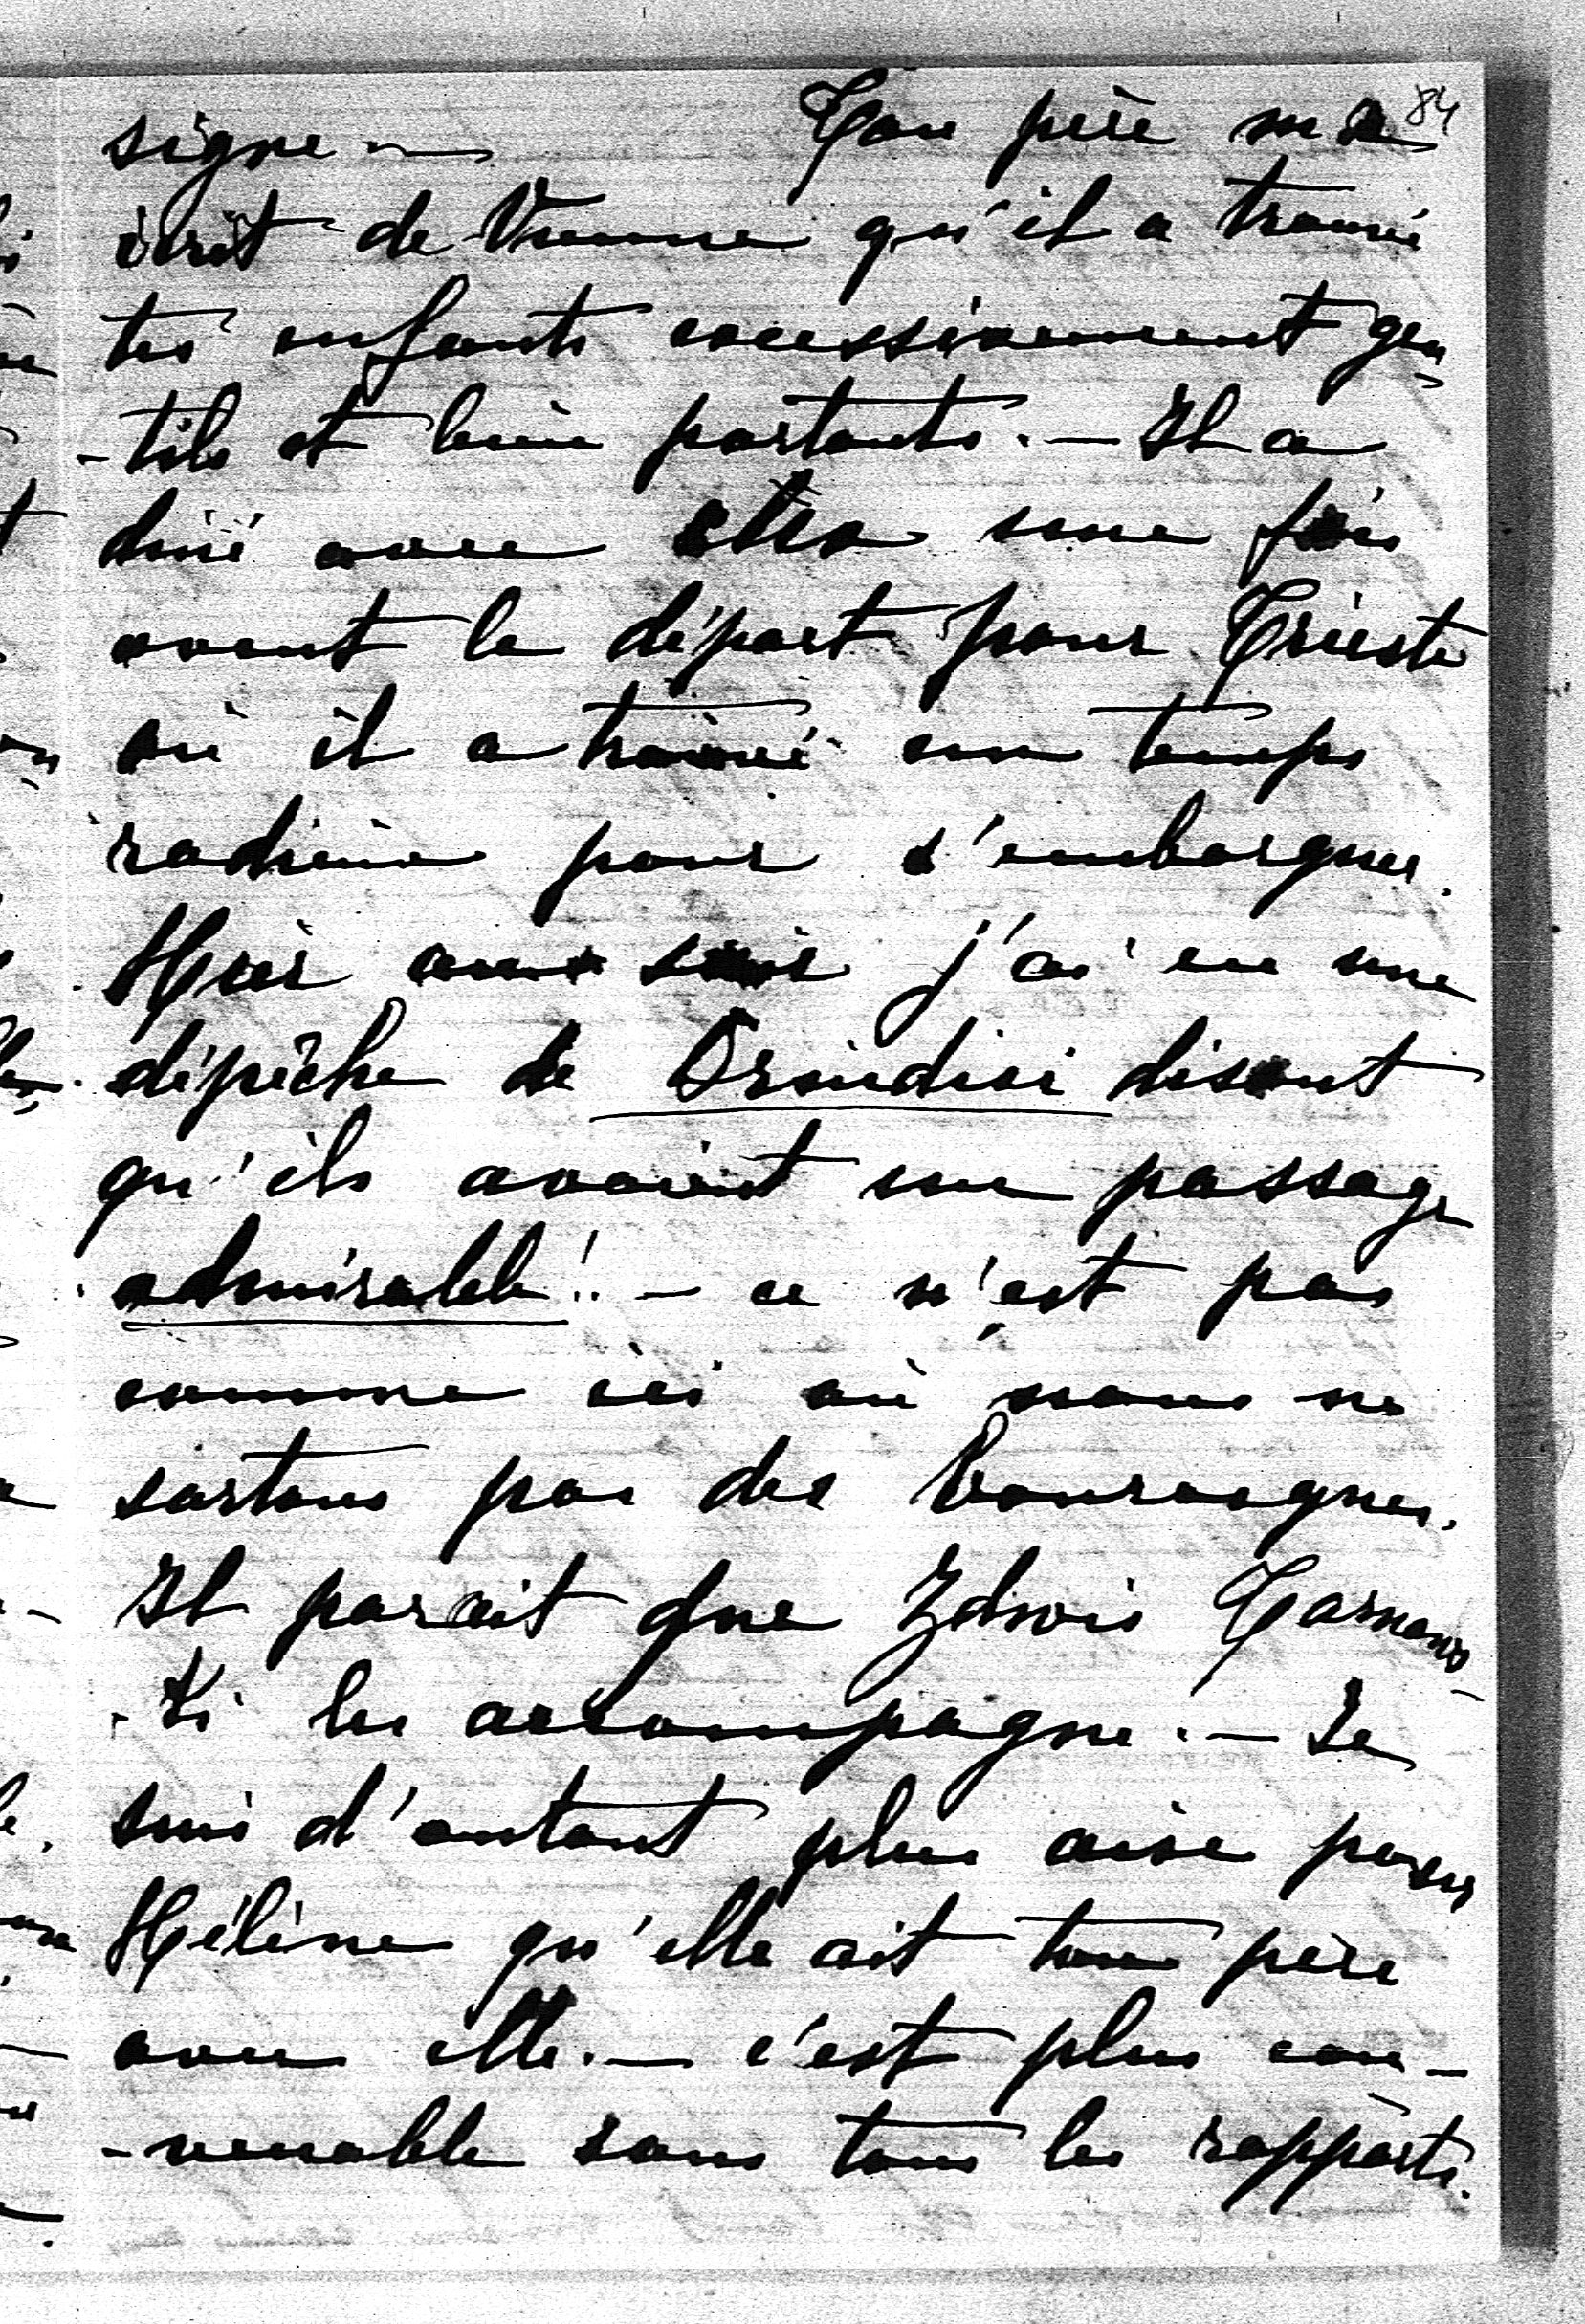 84
signe — Ton père m'a
écrit de Vienne qu'il a trouvé
tes enfants excessivement gen
-tils et bien portants. — Il a
diné avec eux une fois
avant le départ pour Trieste
où il a trouvé un temps
radieux pour s'embarquer.
Hier au soir j'ai eu une
dépêche de Brindisi disant
qu'ils avaient un passage
admirable!.. — ce n'est pas
comme ici où nous ne
sortons pas des bourrasques.
Il parait que Zdzis Tarnows
-Ki les accompagne. — Je
suis d'autant plus aise pour
Hélène qu'elle ait ton père
avec elle. — c'est plus con-
-venable sous tous les rapports.